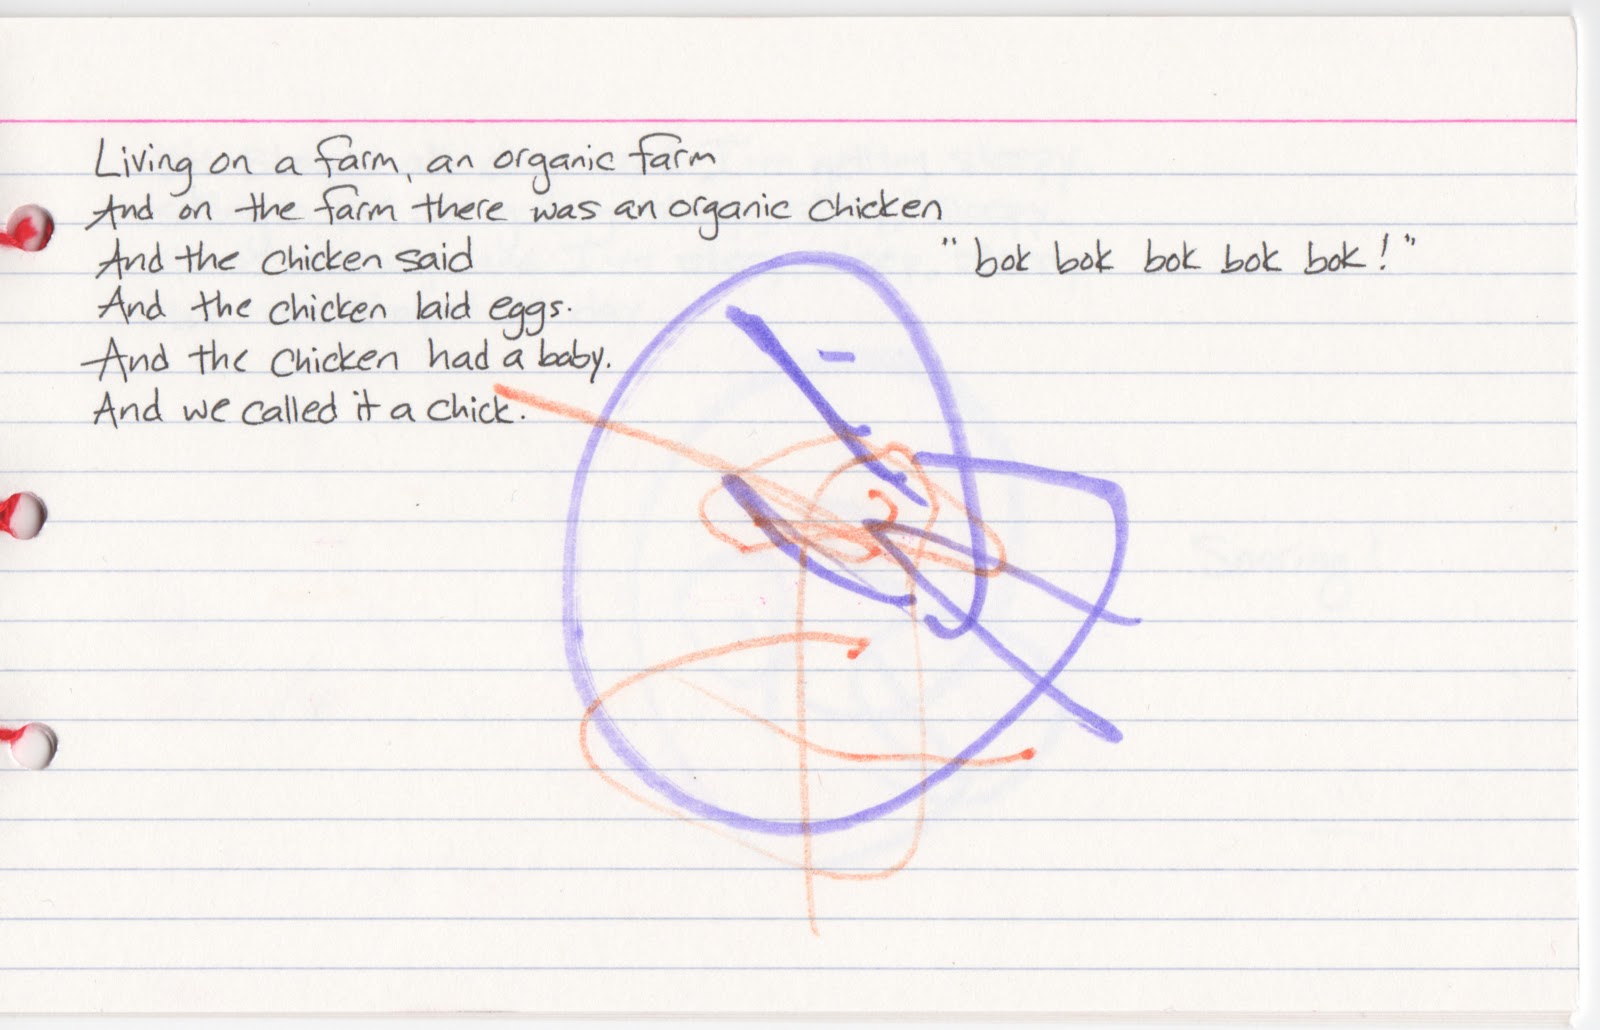 Living on a farm, an organic farm
And on the farm there was an organic chicken
And the chicken said "bok bok bok bok bok!"
And the chicken laid eggs.
And the chicken had a baby.
And we called it a chick.